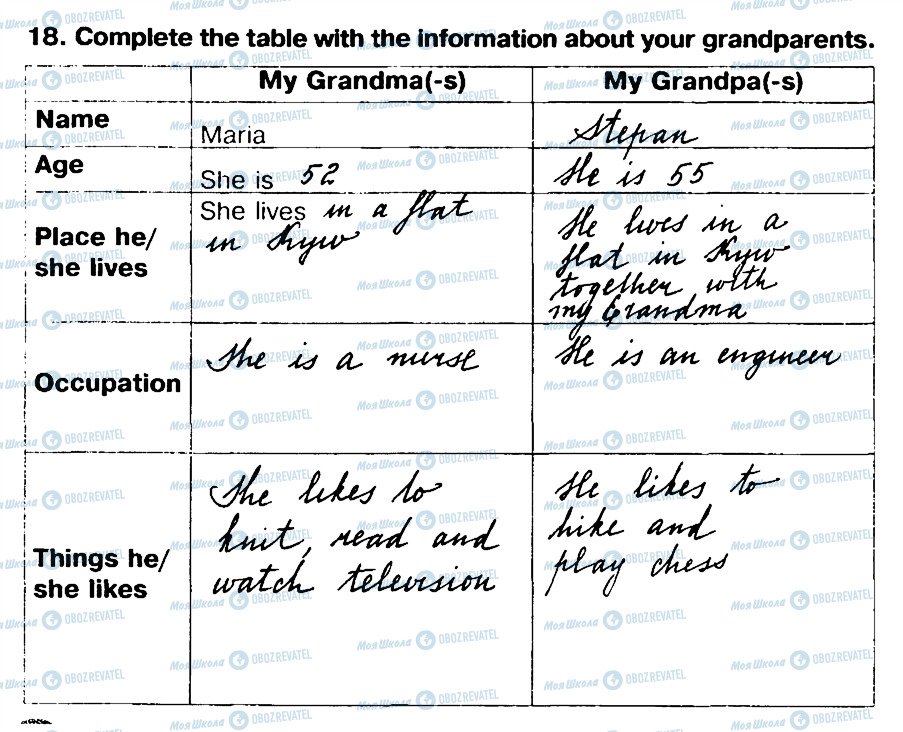 18. Complete the table with the information about your grandparents.
My Grandma(-s) My Grandpa(-s)
Name Maria Stepan
Age She is 52 He is 55
Place he/
she lives
She lives in a flat
in Kyiv
He lives in a
flat in Kyiv
together with
my Grandma
Occupation She is a nurse He is an engineer
Things he/
she likes
She likes to
knit, read and
watch television
He likes to
hike and
play chess
Моя Школа OBOZREVATEL